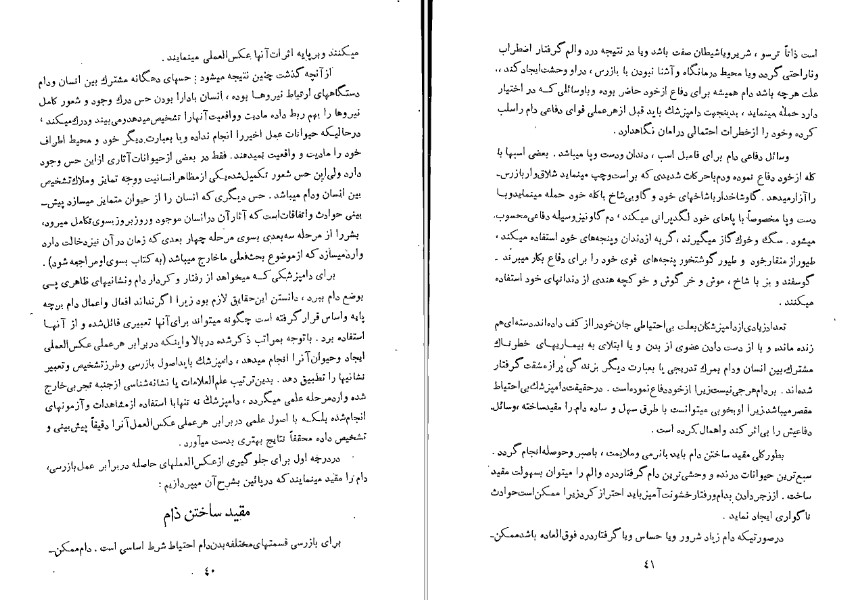 میکنند وبرپایه اثرات آنها عکس‌العملی مینمایند .
از آنچه گذشت چنین نتیجه میشود : حسهای دهگانه مشترك بین انسان ودام
دستگاههای ارتباط نیروها بوده ، انسان بادارا بودن حس درك وجود و شعور کامل
نیروها را بهم ربط داده مادیت وواقعیت آنهارا تشخیص میدهدرمی‌بیند ودرك میکند ؛
درحالیکه حیوانات عمل اخیررا انجام نداده ویا بعبارت دیگر خود و محیط اطراف
خود را مادیت و واقعیت نمیدهند . فقط در بعضی از حیوانات آثاری از این حس وجود
دارد ولی این حس شعور تکمیل شده یکی از مظاهر انسانیت ووجه تمایز وملاك تشخیص
بین انسان ودام میباشد . حس دیگری که انسان را از حیوان متمایز میسازد پیش‌ـ
بینی حوادث واتفاقات است که آثار آن درانسان موجود وروز بروز بسوی تکامل میرود،
بشررا از مرحله سه‌بعدی بسوی مرحله چهار بعدی که زمان در آن نیز دخالت دارد
واردمیسازد که از موضوع بحث فعلی ما خارج میباشد (به کتاب بسوی او مراجعه شود) .
برای دامپزشکی کـه میخواهد از رفتار و کردار دام ونشانیهای ظاهری پـی
بوضع دام ببرد ، دانستن این حقایق لازم بود زیرا اگر نداند افعال واعمال دام برچه
پایه واساس قرار گرفته است چگونه میتواند برای آنها تعبیری قائل شده و از آنهـا
استفاده برد . با توجه بمراتب ذکر شده در بالا و اینکه در برابر هر عملی عکس‌العملی
ایجاد وحیوان آنرا انجام میدهد ، دامپزشك باید اصول بازرسی وطرز تشخیص و تعبیر
نشانیها را تطبیق دهد . بدین ترتیب علم العلامات یا نشانه شناسی از جنبه تجربی خارج
شده وارد مرحله علمی میگردد ، دامپزشك نه تنها با استفاده از مشاهدات و آزمونهای
انجام شده بلکـه با اصول علمی در برابر هر عملی عکس‌العمل آنرا دقیقاً پیش‌بینی و
تشخیص داده محققاً نتایج بهتری بدست میآورد .
در درجه اول برای جلوگیری از عکس‌العملهای حاصله در برابر عمل بازرسی،
دام را مقید مینمایند که در پائین بشرح آن میپردازیم :
مقید ساختن دام
برای بازرسی قسمتهای مختلفه بدن دام احتیاط شرط اساسی است . دام ممکن‌ـ
۴۰
است ذاتاً ترسو ، شریر ویاشیطان صفت باشد ویا در نتیجه درد والم گرفتار اضطراب
وناراحتی گردد ویا محیط درمانگاه و آشنا نبودن با بازرس ، در او وحشت ایجاد کند ،.
علت هرچه باشد دام همیشه برای دفاع از خود حاضر بوده و باوسائلی کـه در اختیار
دارد حمله مینماید ، بدینجهت دامپزشك باید قبل از هر عملی قوای دفاعی دام را سلب
کرده وخود را از خطرات احتمالی در امان نگاهدارد .
وسائل دفاعی دام برای فامیل اسب ، دندان ودست وپا میباشد . بعضی اسبها با
کله از خود دفاع نموده ودم باحرکات شدیدی که براست وچپ مینماید شلاق وار بازرس‌ـ
را آزار میدهد . گاو شاخدار با شاخهای خود و گاو بی‌شاخ با کله خود حمله مینماید و با
دست وپا مخصوصاً با پاهای خود لگدپرانی میکند ، دم گاو نیز وسیله دفاعی محسوب
میشود . سگ وخوك گاز میگیرند ، گربه از دندان وپنجه‌های خود استفاده میکند ،
طیور از منقار خود و طیور گوشتخور پنجه‌های قوی خود را برای دفاع بکار میبرند .
گوسفند و بز با شاخ ، موش و خرگوش و خوکچه هندی از دندانهای خود استفاده
میکنند .
تعداد زیادی از دامپزشکان بعلت بی‌احتیاطی جان خود را از کف داده‌اند دسته‌ای هم
زنده مانده و با از دست دادن عضوی از بدن و یا ابتلای به بیماریهای خطرنـاك
مشترك بین انسان ودام بمرك تدریجی یا بعبارت دیگر بزندگی پر از مشقت گرفتار
شده‌اند . بردام هرجی نیست زیرا از خود دفاع نموده است . در حقیقت دامپزشك بی‌احتیاط
مقصر میباشد زیرا او بخوبی میتوانست با طرق سهل و ساده دام را مقید ساخته ، وسائل
دفاعیش را بی‌اثر کند واهمال کرده است .
بطور کلی مقید ساختن دام باید بانرمی وملایمت ، باصبر وحوصله انجام گردد .
سبع‌ترین حیوانات درنده و وحشی‌ترین دام گرفتار درد والم را میتوان بسهولت مقید
ساخت . از زجر دادن بدام ورفتار خشونت آمیز باید احتراز کرد زیرا ممکن است حوادث
ناگواری ایجاد نماید .
درصورتیکه دام زیاد شرور ویا حساس ویا گرفتار درد فوق‌العاده باشد ممکن‌ـ
۴۱